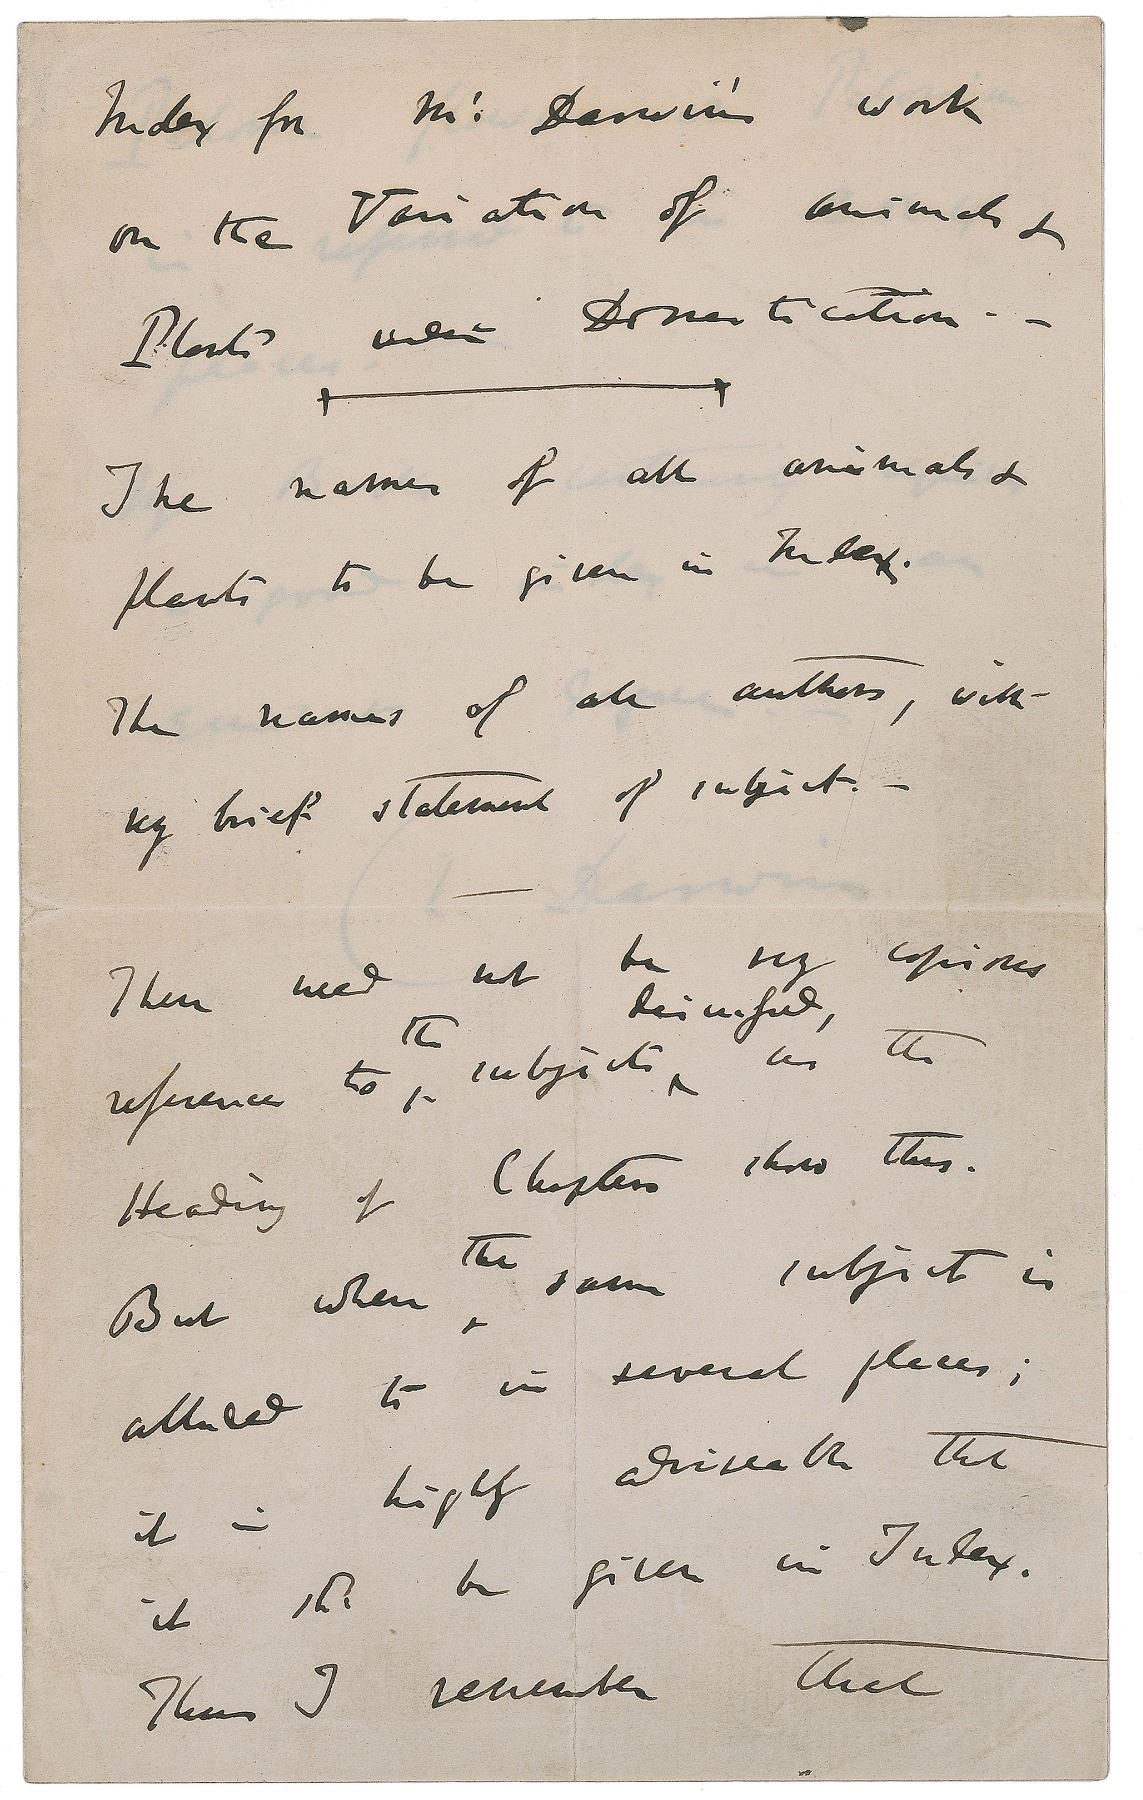 Index for Mr. Darwin's work
on the Variation of animals &
Plants under Domestication - -
The names of all animals &
plants to be given in Index.
The names of all authors, with
vy brief statement of subject. -
There need not be vy copious
discussed,
the
references to subjects, as the
Heading of Chapters show this.
the
But when same subject is
alluded to in several places;
it is highly adviseable that
it shd be given in Index.
Thus I remember that